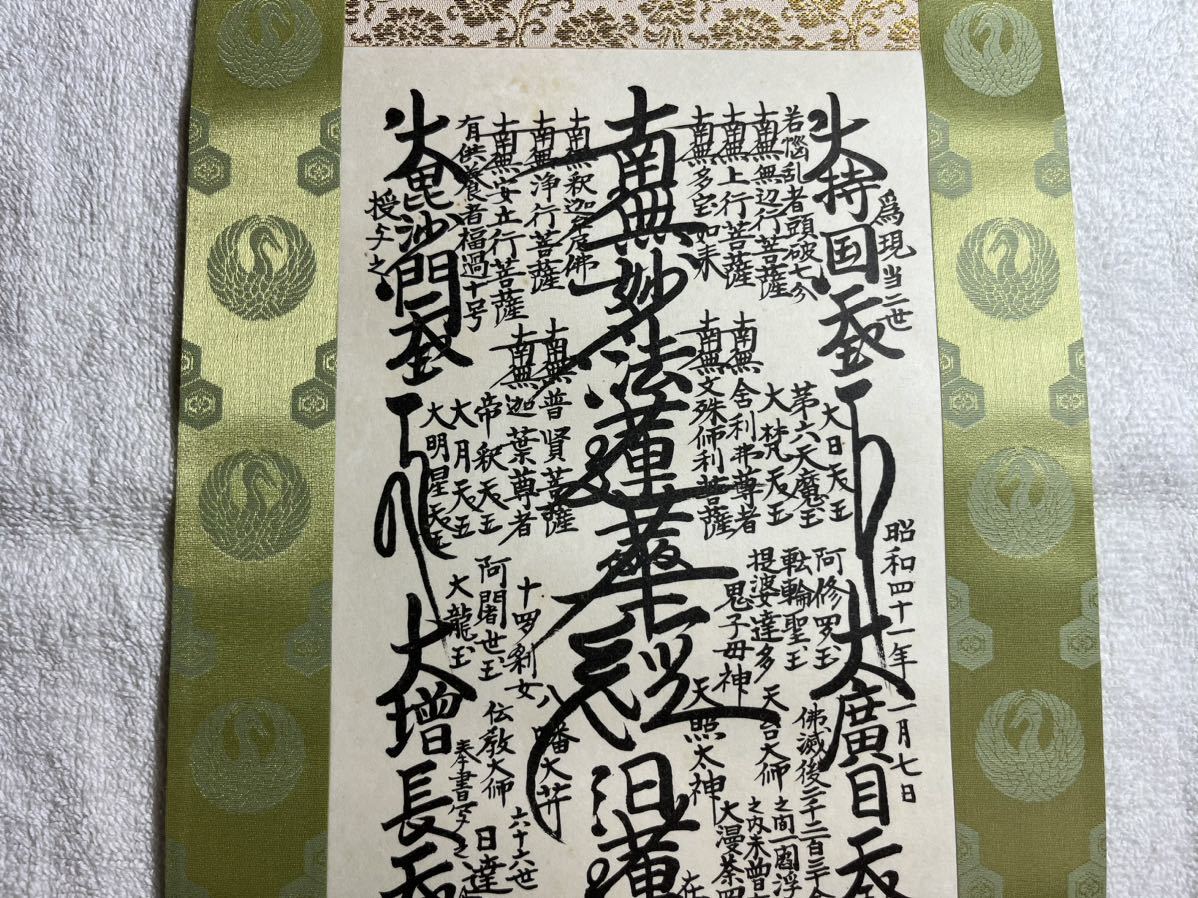 為現当二世
昭和四十一年一月七日
大持国天王
大廣目天
若悩乱者頭破七分
南無無辺行菩薩
南無上行菩薩
南無多宝如来
大日天王
第六天魔王
大梵天王
南無舎利弗尊者
南無文殊師利菩薩
阿修羅王
転輪聖王
提婆達多
鬼子母神
佛滅後二千二百三十余
之間一閻浮
之内未曽
大漫荼
天台大師
天照太神
南無妙法蓮華経
日蓮
在
南無釈迦牟尼佛
南無浄行菩薩
南無安立行菩薩
有供養者福過十号
南無普賢菩薩
南無迦葉尊者
帝釈天王
大月天王
大明星天王
十羅刹女
阿闍世王
大龍王
八幡大菩薩
伝教大師
六十六世
日達
奉書写之
大毘沙門天王
大増長天
授与之